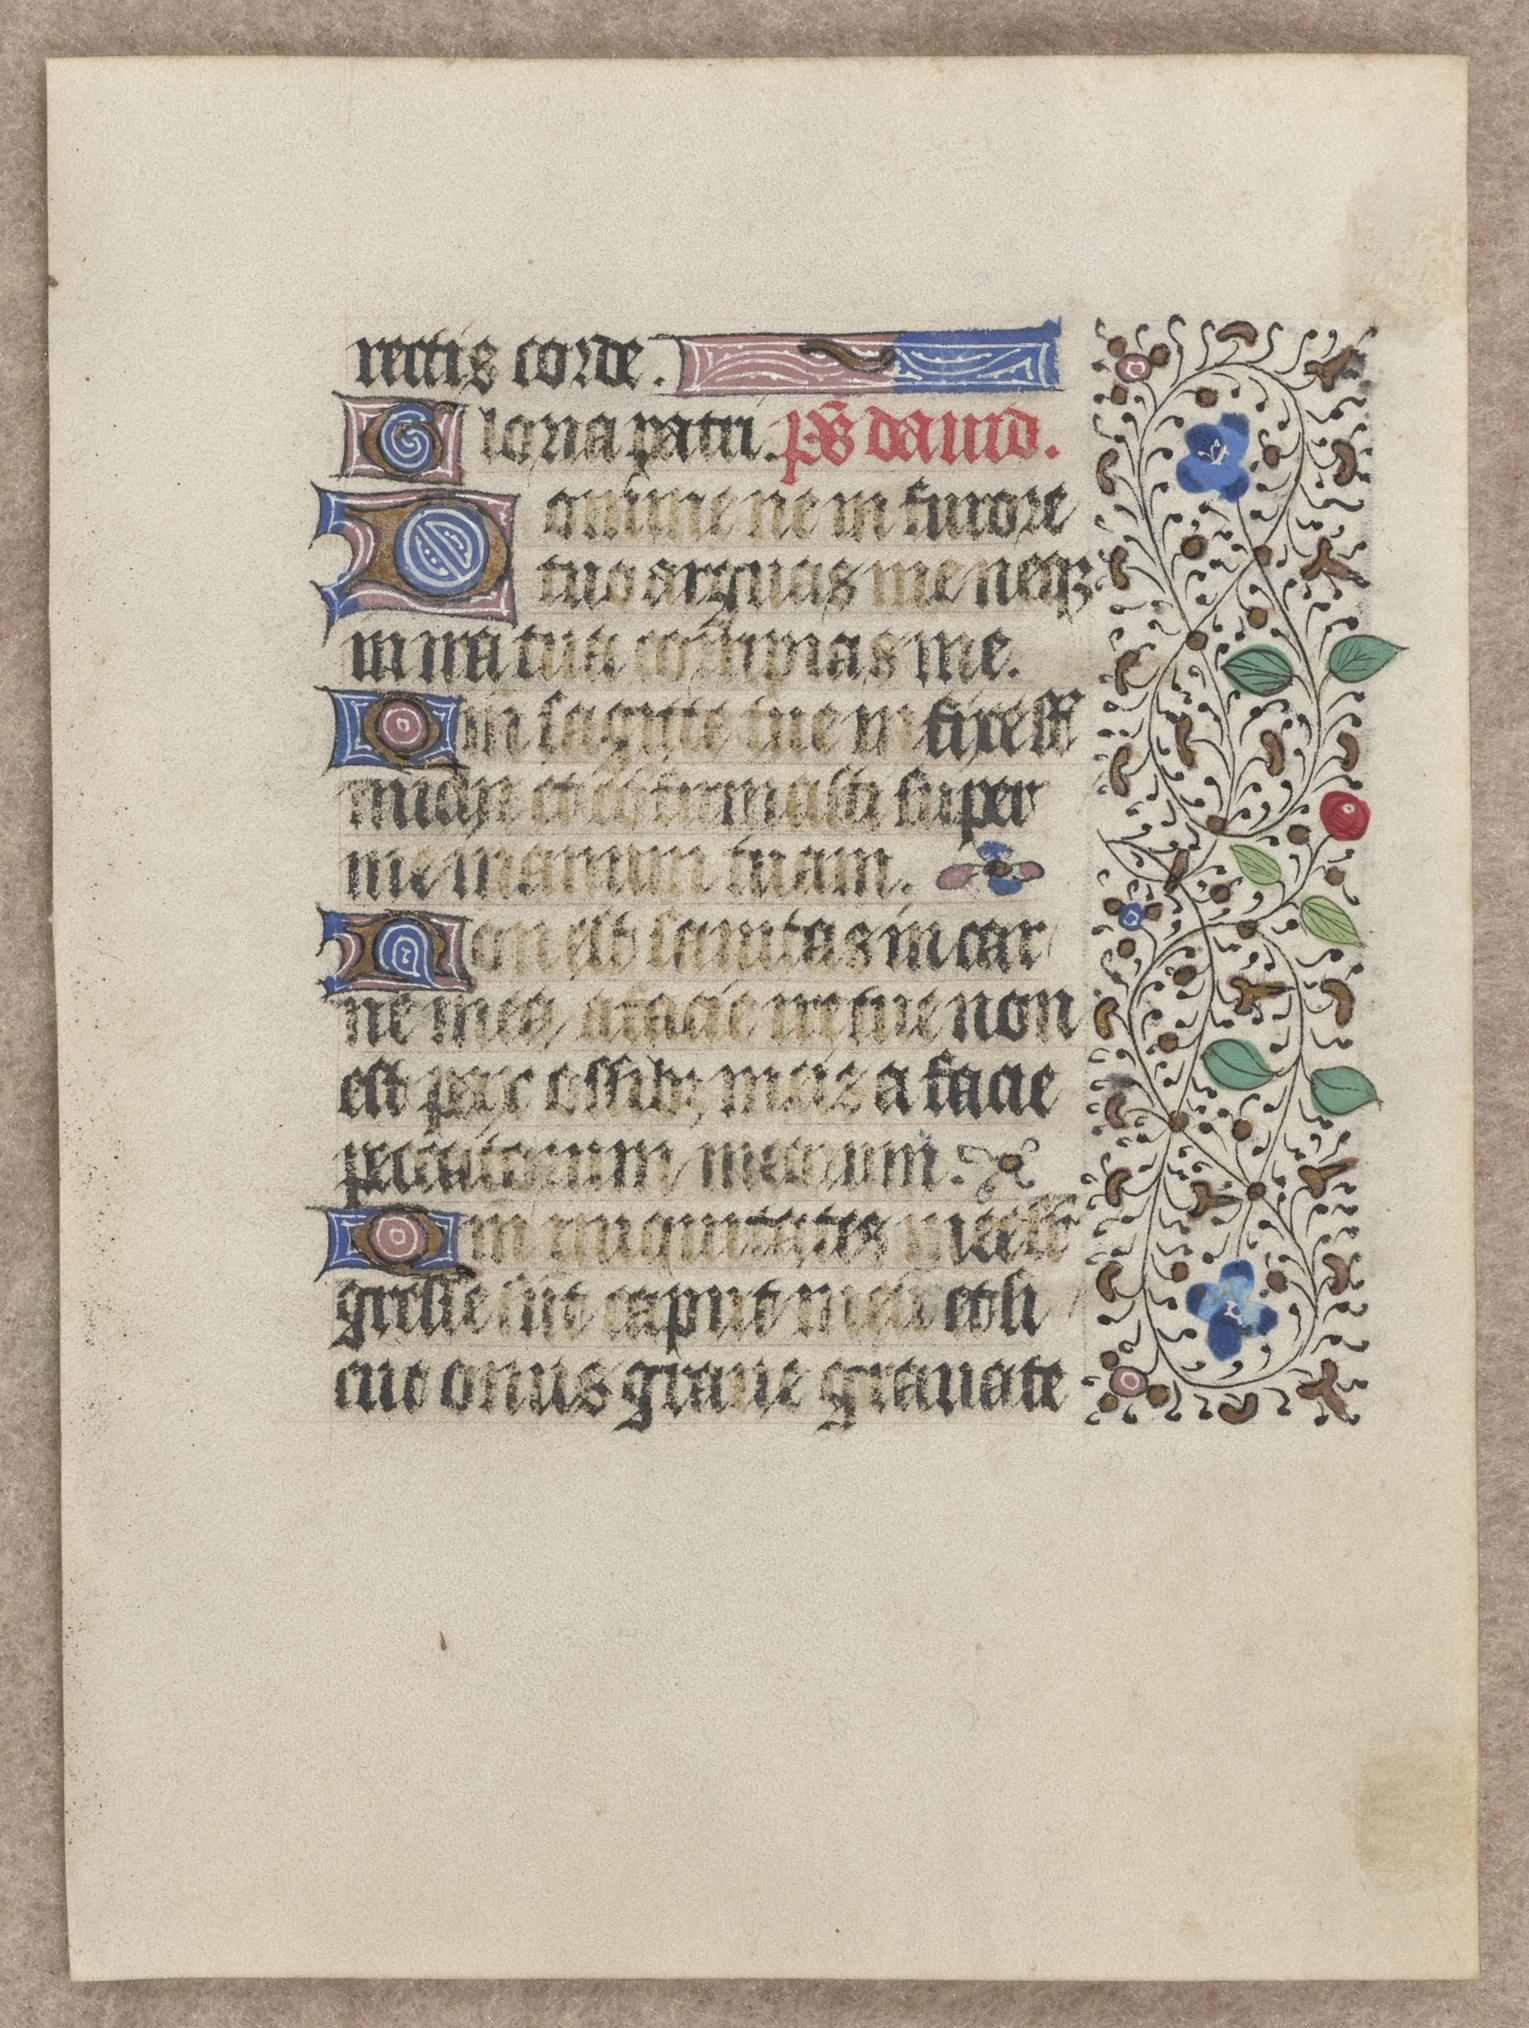 rectis corde.
Gloria patri. ps̄ dauid.
Domine ne in furore
tuo arguas me neqꝫ
in ira tua corripias me.
Qm̄ sagitte tue in fixe st̄
michi et cōfirmasti super
me manum tuam.
Non est sanitas in car
ne mea a facie ire tue non
est pax ossibꝫ meis a facie
peccatorum meorum.
Qm̄ iniquitates mee su̅
gresse sūt caput meū et si
cut onus graue grauate